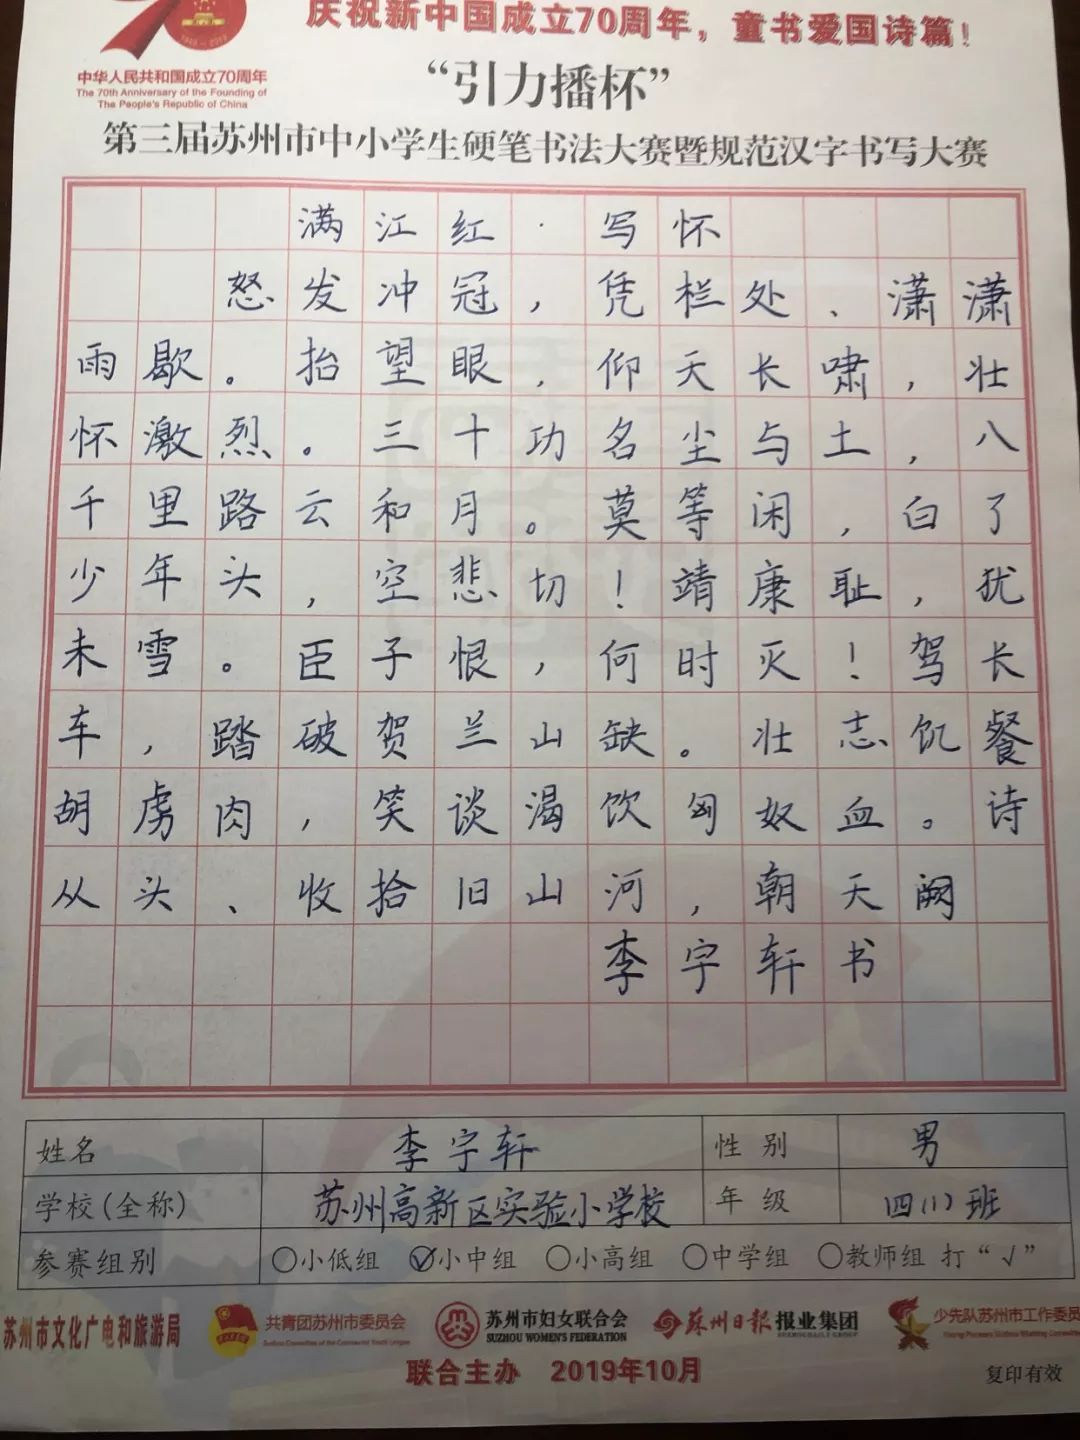 庆祝新中国成立70周年，童书爱国诗篇！
中华人民共和国成立70周年
The 70th Anniversary of the Founding of
The People's Republic of China
“引力播杯”
第三届苏州市中小学生硬笔书法大赛暨规范汉字书写大赛
满江红·写怀
怒发冲冠，凭栏处、潇潇
雨歇。抬望眼，仰天长啸，壮
怀激烈。三十功名尘与土，八
千里路云和月。莫等闲，白了
少年头，空悲切！靖康耻，犹
未雪。臣子恨，何时灭！驾长
车，踏破贺兰山缺。壮志饥餐
胡虏肉，笑谈渴饮匈奴血。诗
从头、收拾旧山河，朝天阙
李宇轩书
姓名 李宇轩 性别 男
学校(全称) 苏州高新区实验小学校 年级 四(1)班
参赛组别 小低组 小中组 小高组 中学组 教师组 打“√”
苏州市文化广电和旅游局 共青团苏州市委员会 苏州市妇女联合会 苏州日报报业集团 少先队苏州市工作委员
SUZHOU WOMEN'S FEDERATION
联合主办 2019年10月
复印有效